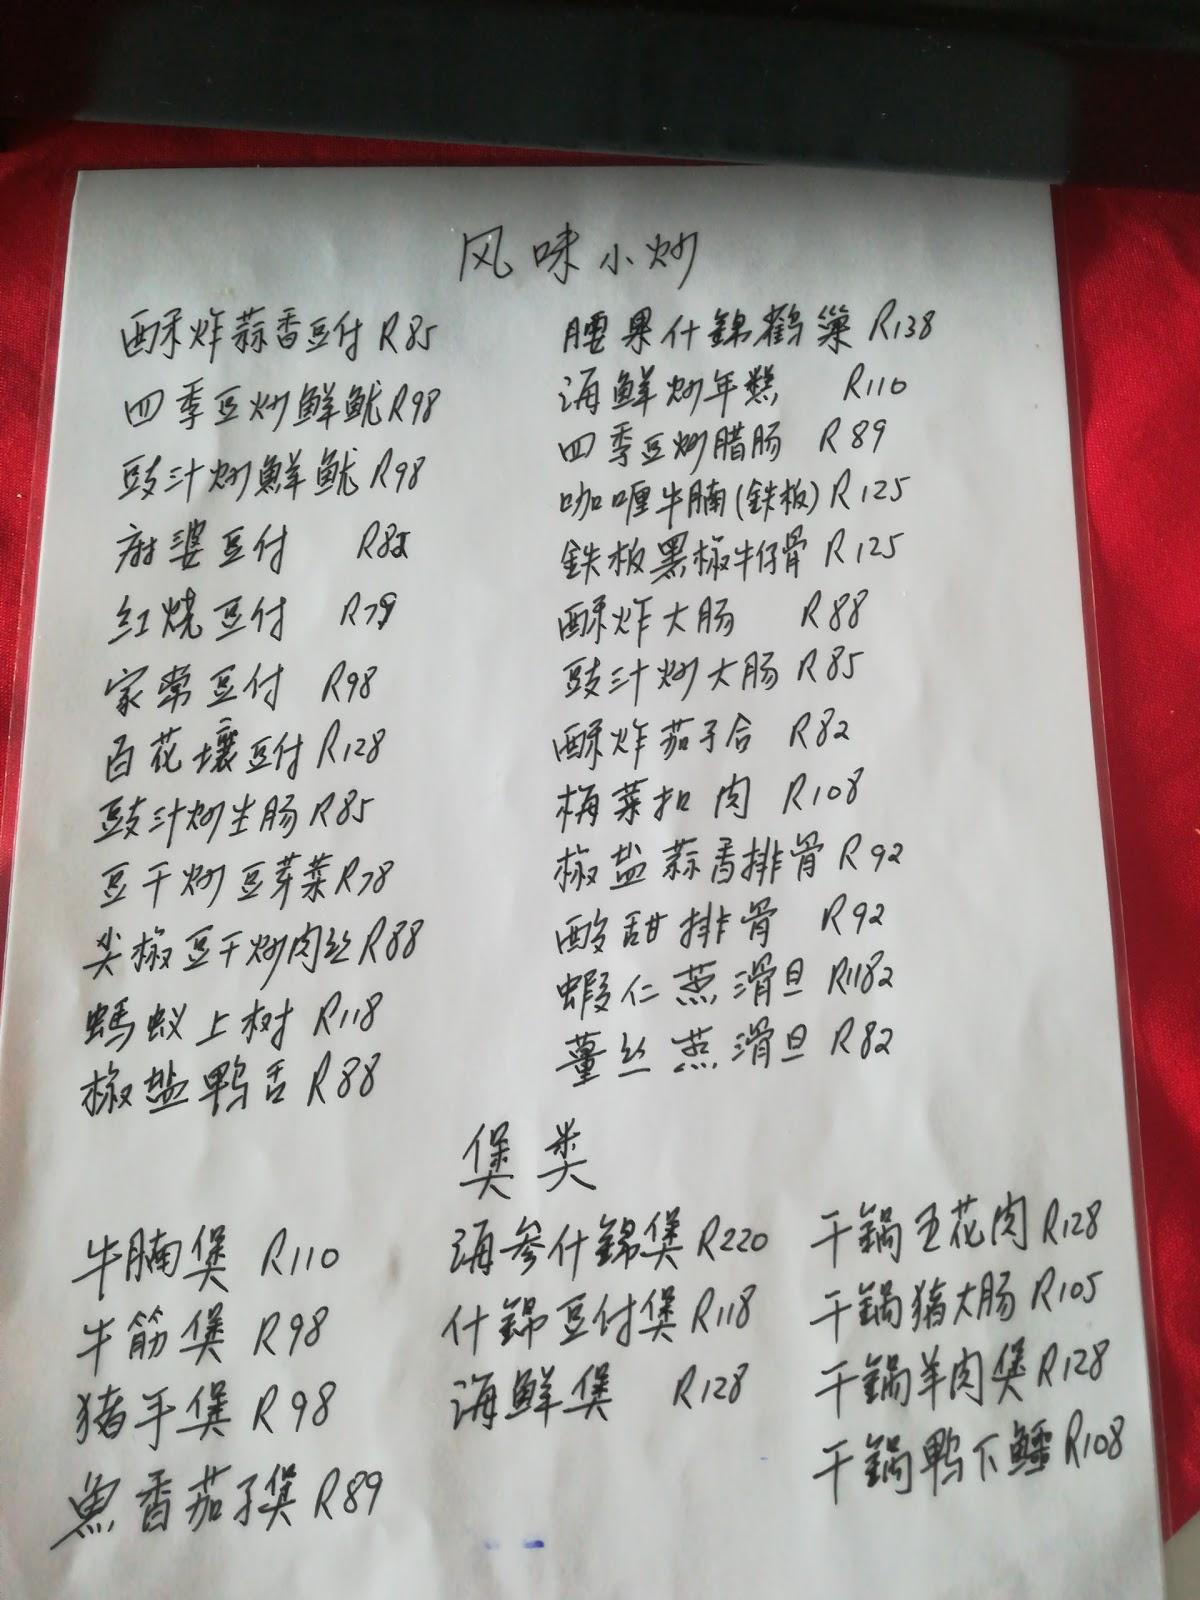 风味小炒
酥炸蒜香豆付 R85
四季豆炒鲜鱿 R98
豉汁炒鮮鱿 R98
麻婆豆付 R82
红烧豆付 R79
家常豆付 R98
百花壤豆付 R128
豉汁炒生肠 R85
豆干炒豆芽菜 R78
尖椒豆干炒肉丝 R88
螞蚁上树 R118
椒盐鸭舌 R88
腰果什錦鹤巢 R138
海鲜炒年糕 R110
四季豆炒腊肠 R89
咖喱牛腩(鉄板) R125
鉄板黑椒牛仔骨 R125
酥炸大肠 R88
豉汁炒大肠 R85
酥炸茄子合 R82
梅菜扣肉 R108
椒盐蒜香排骨 R92
酸甜排骨 R92
蝦仁蒸滑旦 R1182
薑丝蒸滑旦 R82
煲类
牛腩煲 R110
牛筋煲 R98
猪手煲 R98
魚香茄子煲 R89
海参什錦煲 R220
什錦豆付煲 R118
海鲜煲 R128
干鍋五花肉 R128
干鍋猪大肠 R105
干鍋羊肉煲 R128
干鍋鸭下 R108